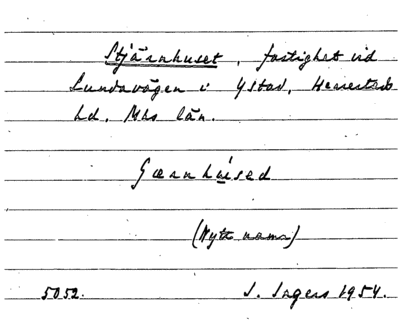 Stjärnhuset, fastighet vid
Lundavägen i Ystad, Herrestads
hd. Mlhs län.
(Nytt namn)
5052. I. Ingers 1954.